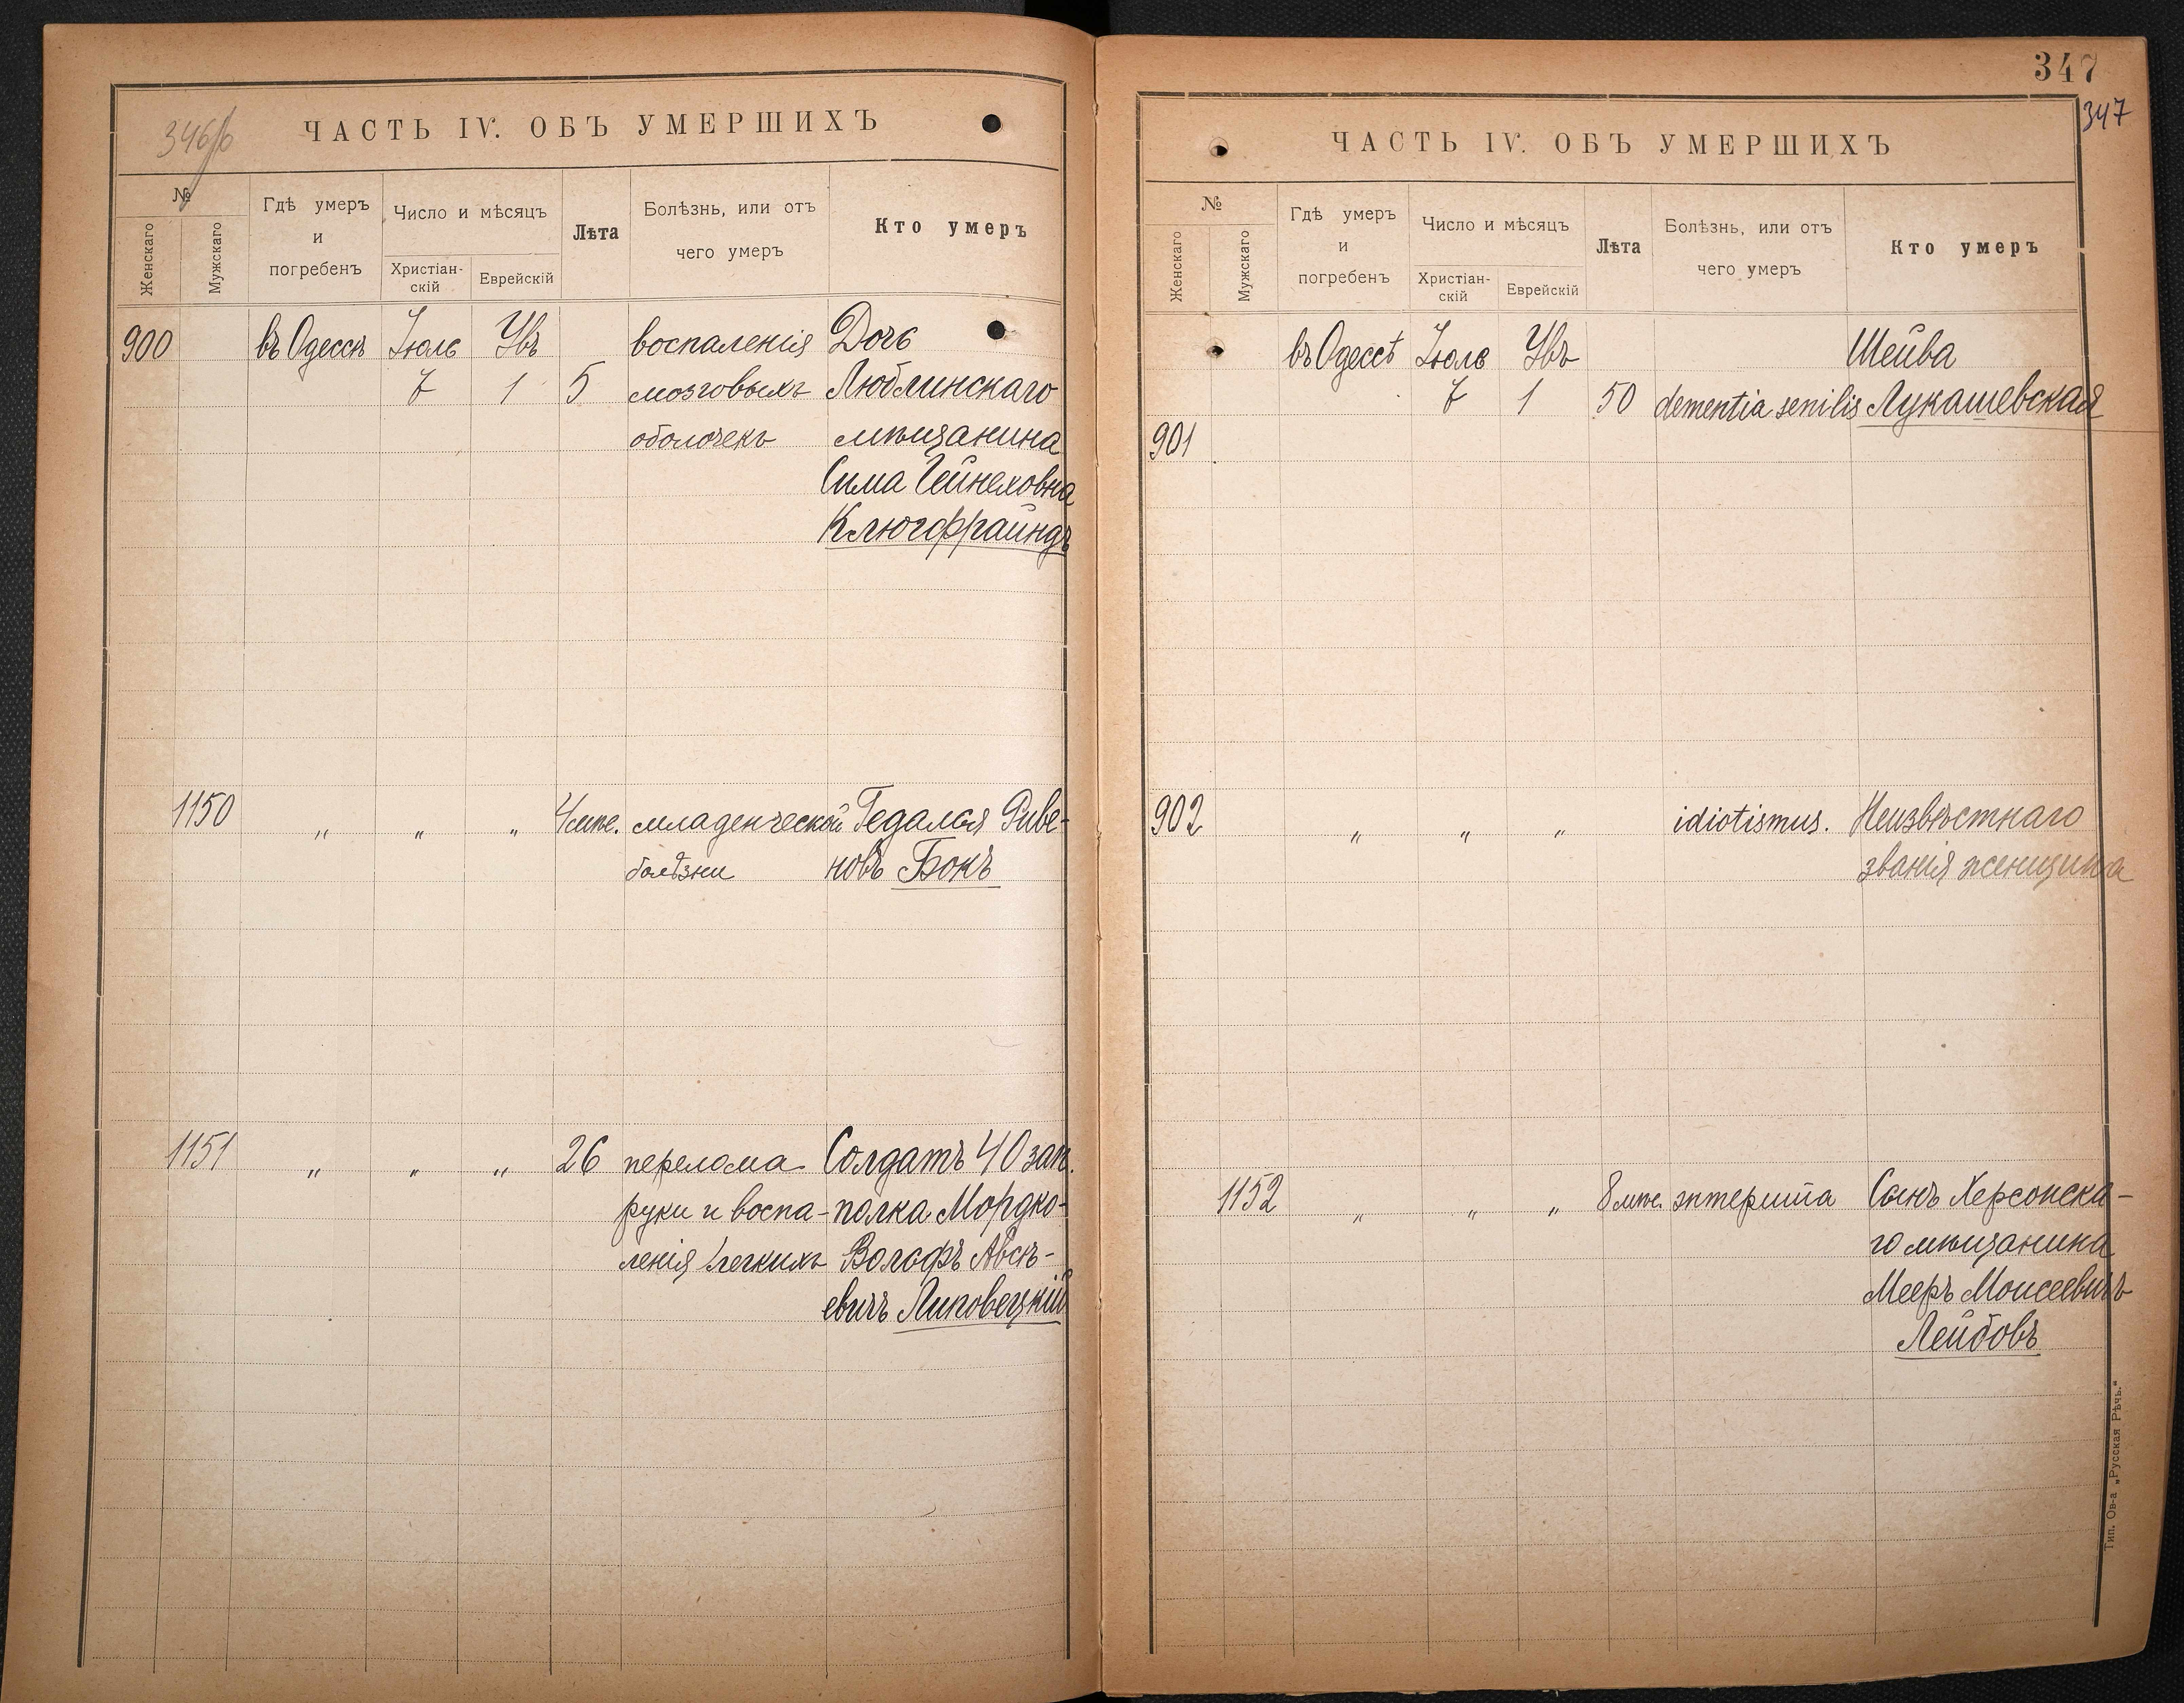 346/б
ЧАСТЬ IV. ОБЪ УМЕРШИХЪ
№
Женскаго
Мужскаго
Гдѣ умеръ
и
погребенъ
Число и мѣсяцъ
Христіан-
скій
Еврейскій
Лѣта
Болѣзнь, или отъ
чего умеръ
Кто умеръ
900 въ Одессѣ Іюль Увъ воспаленія Дочь
7 1 5 мозговыхъ Люблинскаго
оболочекъ мѣщанина
Сима Гейнеховна
Клюгфрайндъ
1150 " " " 4 мѣс. младенческой Гедалья Риве-
болѣзни новъ Бокъ
1151 " " " 26 перелома Солдатъ 40 зап.
руки и воспа- полка Мордко-
ленія легкихъ Волофъ Авсѣ-
евичъ Липовецкій
347
347
ЧАСТЬ IV. ОБЪ УМЕРШИХЪ
№
Женскаго
Мужскаго
Гдѣ умеръ
и
погребенъ
Число и мѣсяцъ
Христіан-
скій
Еврейскій
Лѣта
Болѣзнь, или отъ
чего умеръ
Кто умеръ
въ Одессѣ Іюль Увъ Шейва
7 1 50 dementia senilis Лукашевская
901
902 " " " idiotismus. Неизвѣстнаго
званія женщина
1152 " " " 8 мѣс. энтерита Сынъ Херсонска-
го мѣщанина
Мееръ Моисеевичъ
Лейбовъ
Тип. Ов-а „Русская Рѣчь."